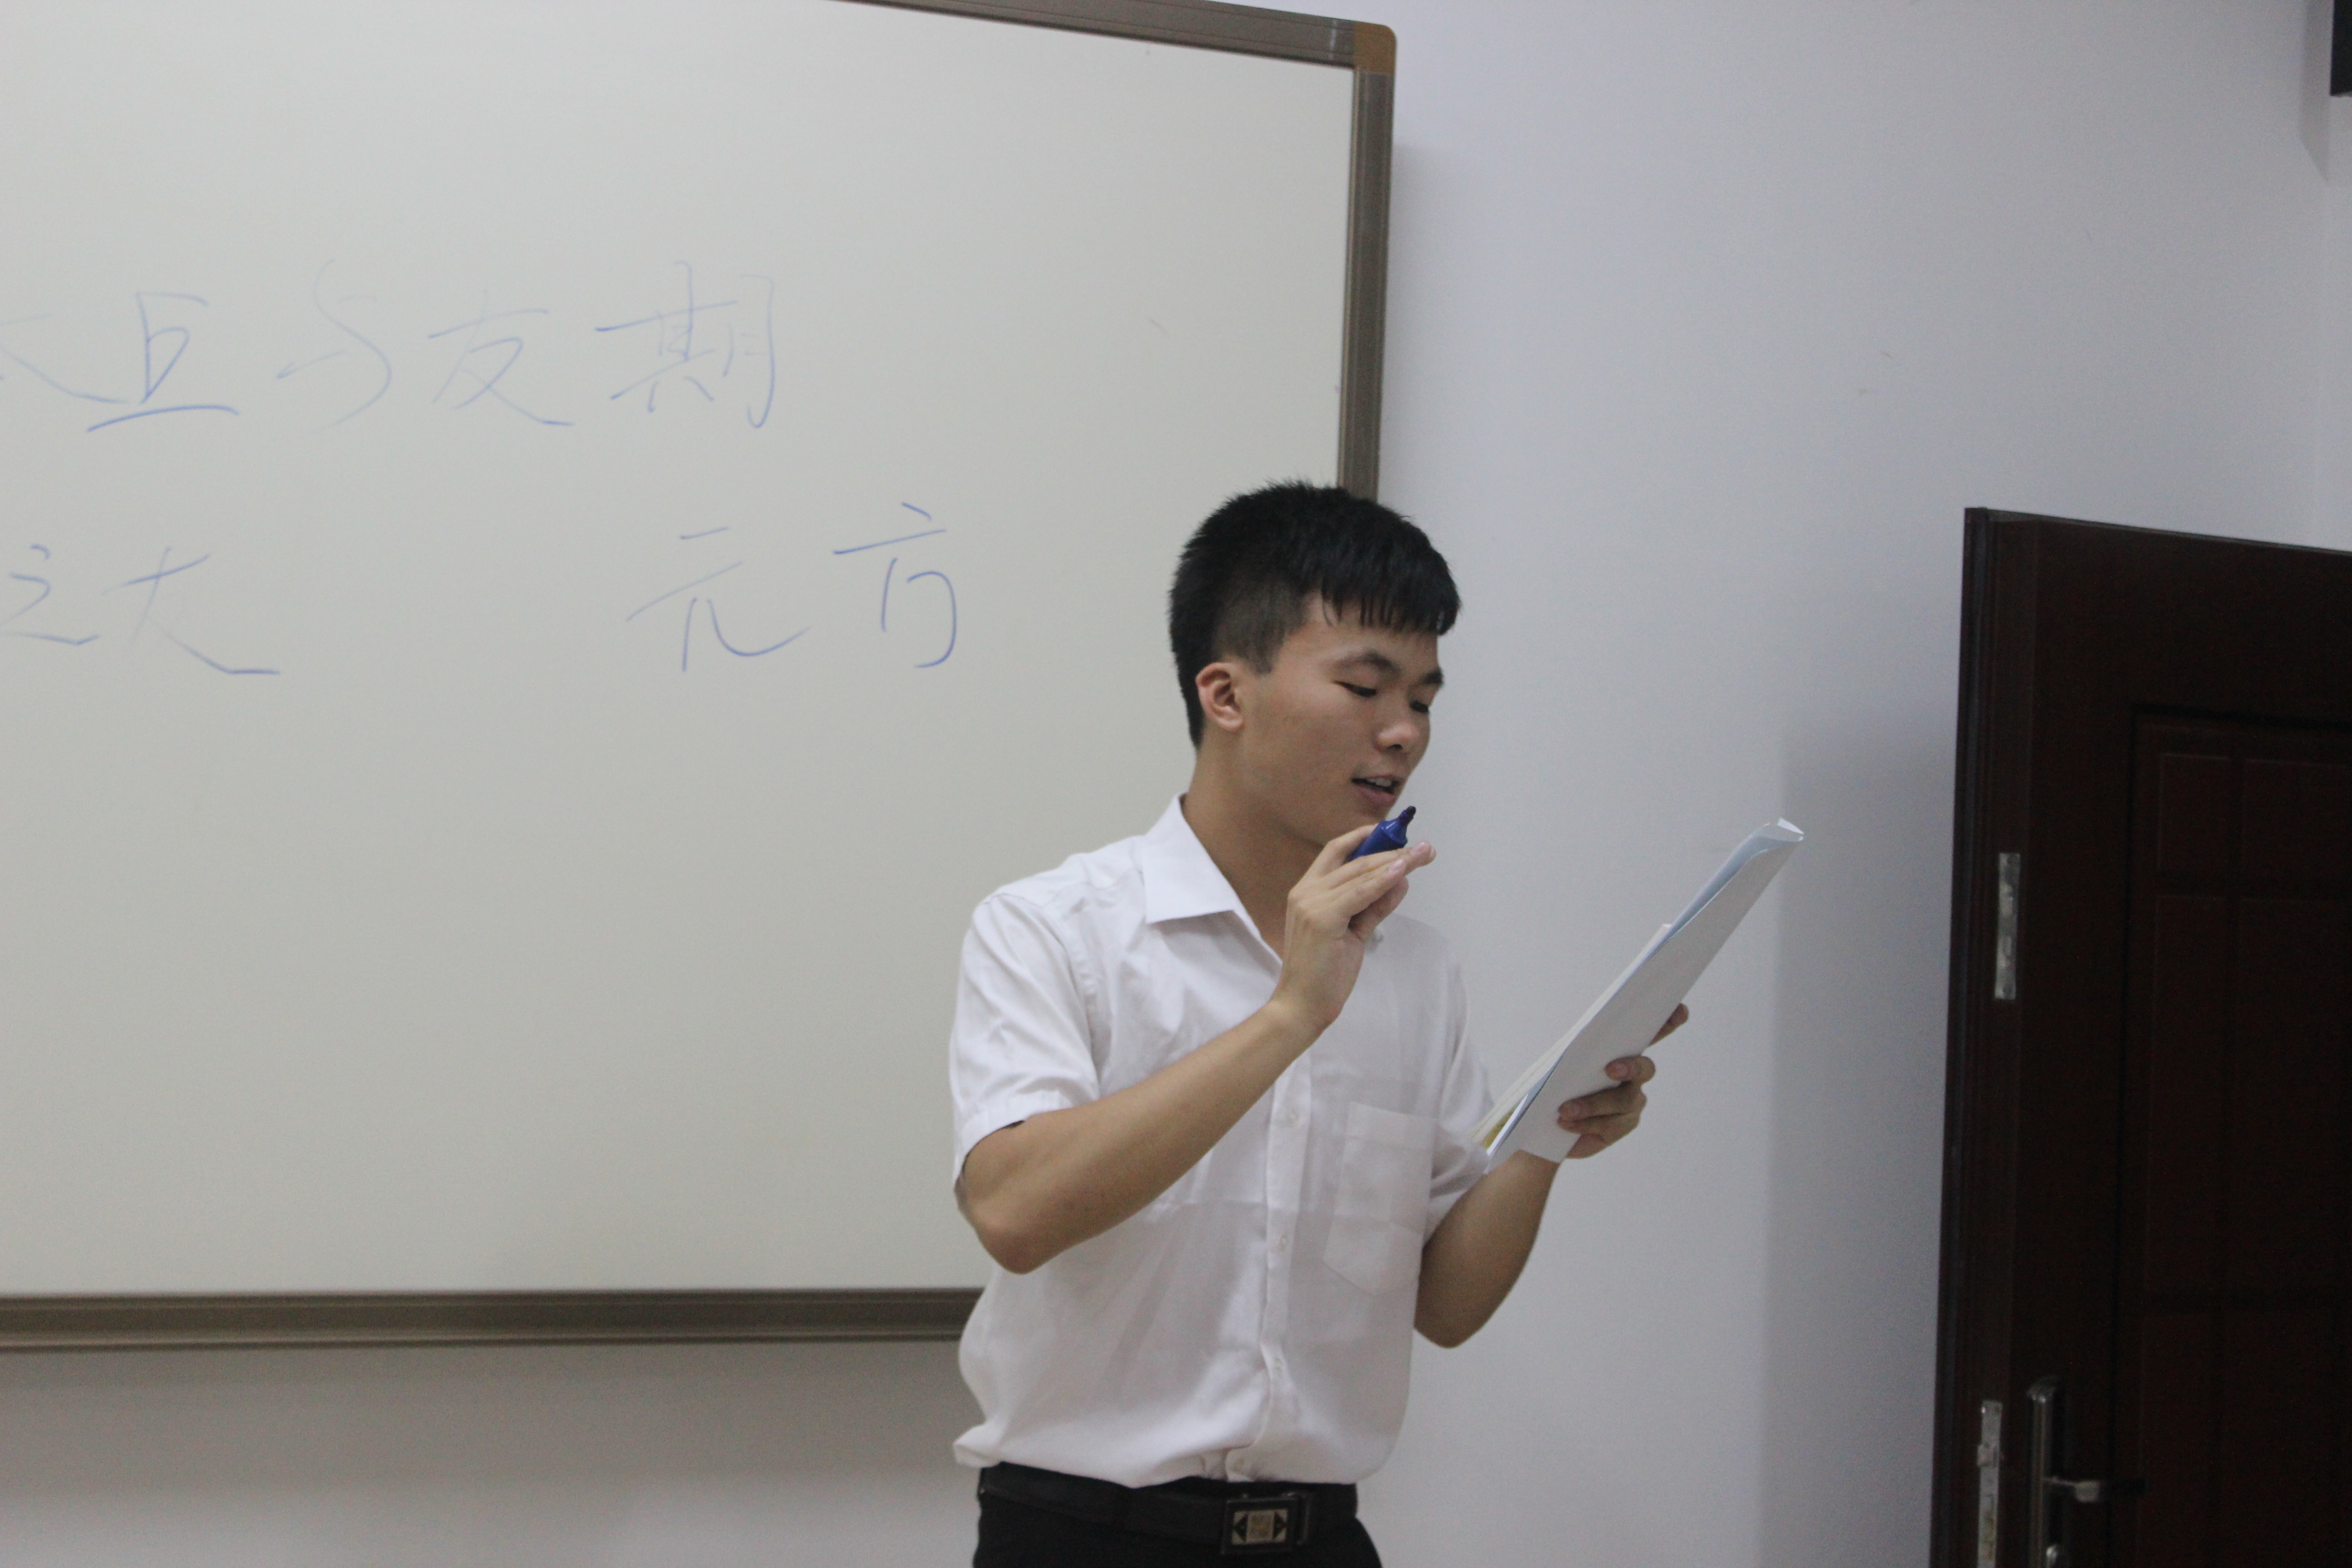 丘与友期
之大 元方